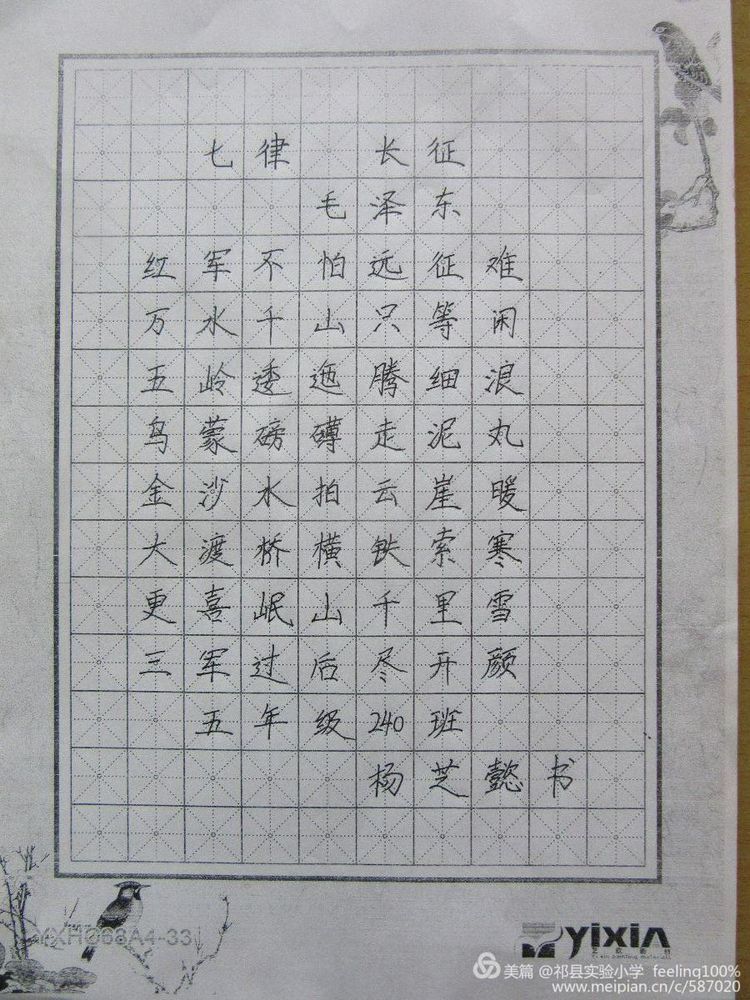 七律 长征
毛泽东
红军不怕远征难
万水千山只等闲
五岭逶迤腾细浪
乌蒙磅礴走泥丸
金沙水拍云崖暖
大渡桥横铁索寒
更喜岷山千里雪
三军过后尽开颜
五年级240班
杨芝懿书
YXHC68A4-33
yixin
美篇 @祁县实验小学 feeling100%
www.meipian.cn/c/587020